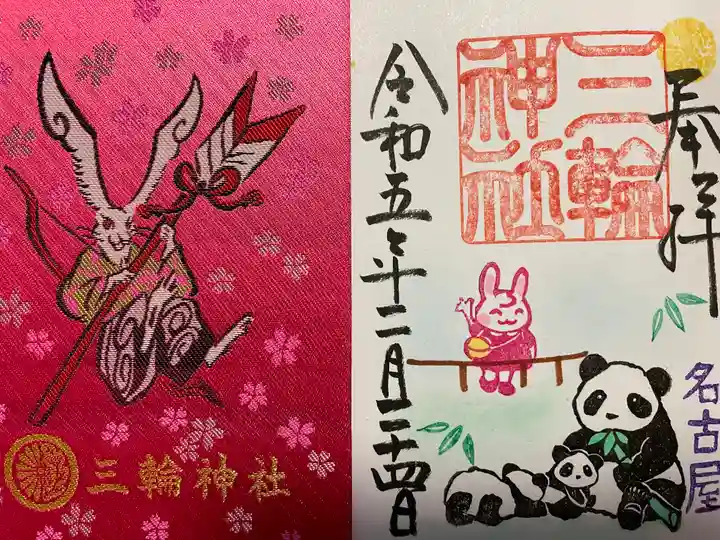 三輪神社
奉拝
三輪
神社
令和五年二月二十四日
名古屋